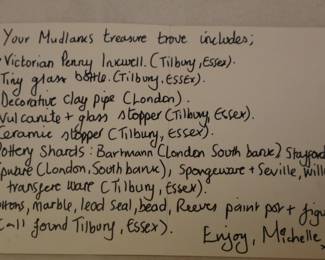 Your Mudlarks treasure trove includes;
Victorian Penny Inkwell. (Tilbury, Essex).
Tiny glass bottle. (Tilbury, Essex).
Decorative clay pipe (London).
Vulcanite + glass stopper (Tilbury, Essex)
Ceramic stopper (Tilbury, Essex).
Pottery Shards: Bartmann (London South bank)
(London, South bank), Spongeware + Seville,
transfer ware (Tilbury, Essex).
marble, lead seal, bead, Reeves paint pot +
(all found Tilbury, Essex).
Enjoy, Michelle